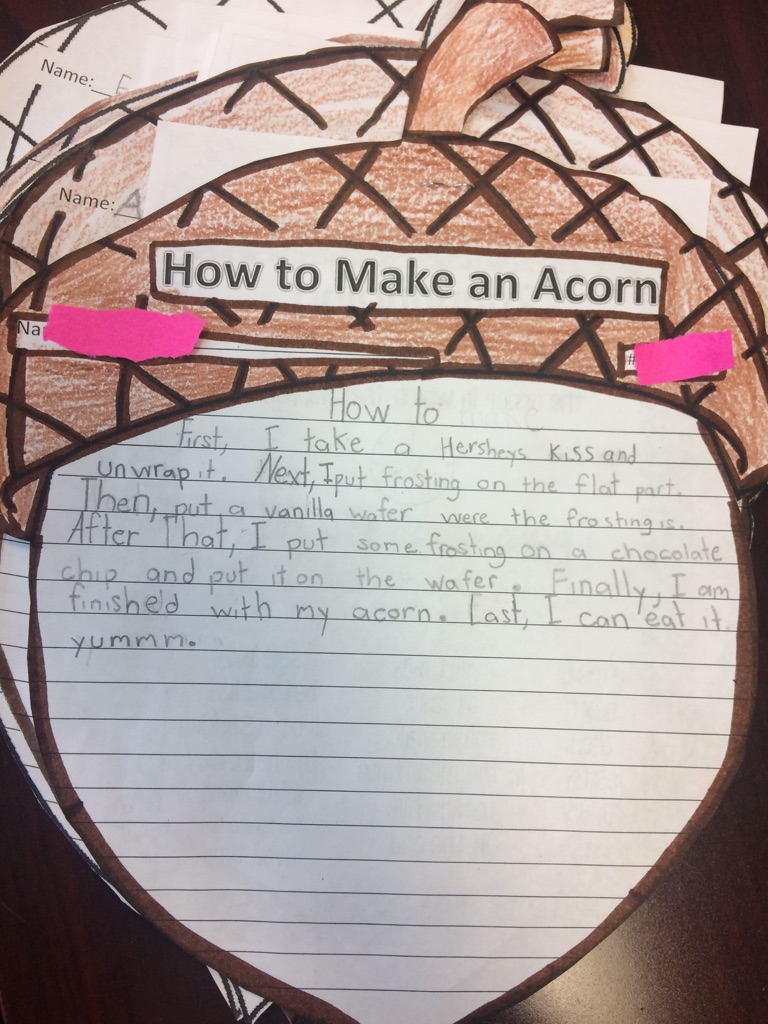 Name: E
Name: A
How to Make an Acorn
Na
#
How to
First, I take a Hersheys Kiss and
unwrap it. Next, I put frosting on the flat part.
Then, put a vanilla wafer were the frosting is.
After That, I put some frosting on a chocolate
chip and put it on the wafer. Finally, I am
finished with my acorn. Last, I can eat it
yummm.